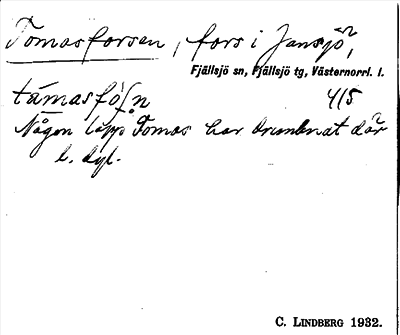 Tomasforsen, fors i Jansjö,
Fjällsjö sn, Fjällsjö tg, Västernorrl. l.
támasfòʃn̥ 4/5
Någon lapp Tomas har drunknat där
l. dyl.
C. LINDBERG 1932.